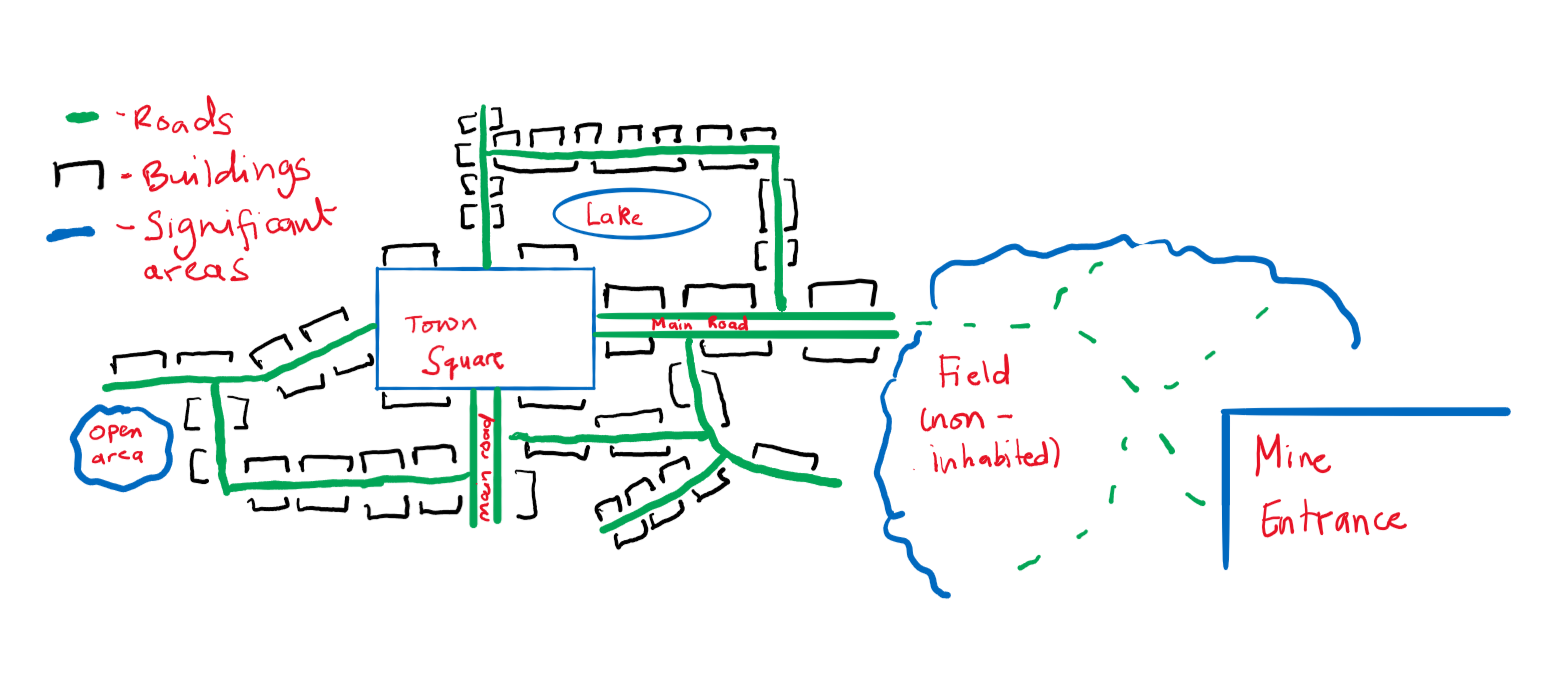 - Roads
- Buildings
- Significant
areas
Lake
Town
Square
Main Road
Main road
Open
area
Field
(non -
inhabited)
Mine
Entrance